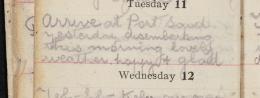 Tuesday 11
Arrive at Port Said
yesterday disembarking
this morning lovely
weather happy & glad
Wednesday 12